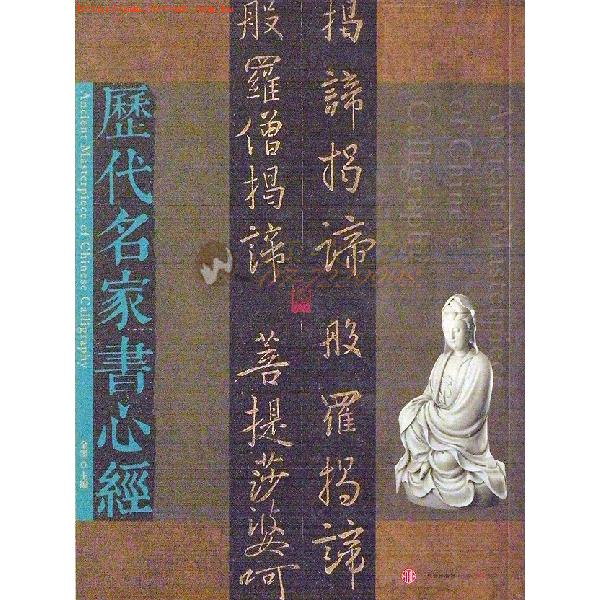 歷代名家書心經
Ancient Masterpiece of Chinese Calligraphy
揭諦揭諦 般羅揭諦
般羅僧揭諦 菩提莎婆呵
Ancient Masterpiece
of Chinese
Calligraphy